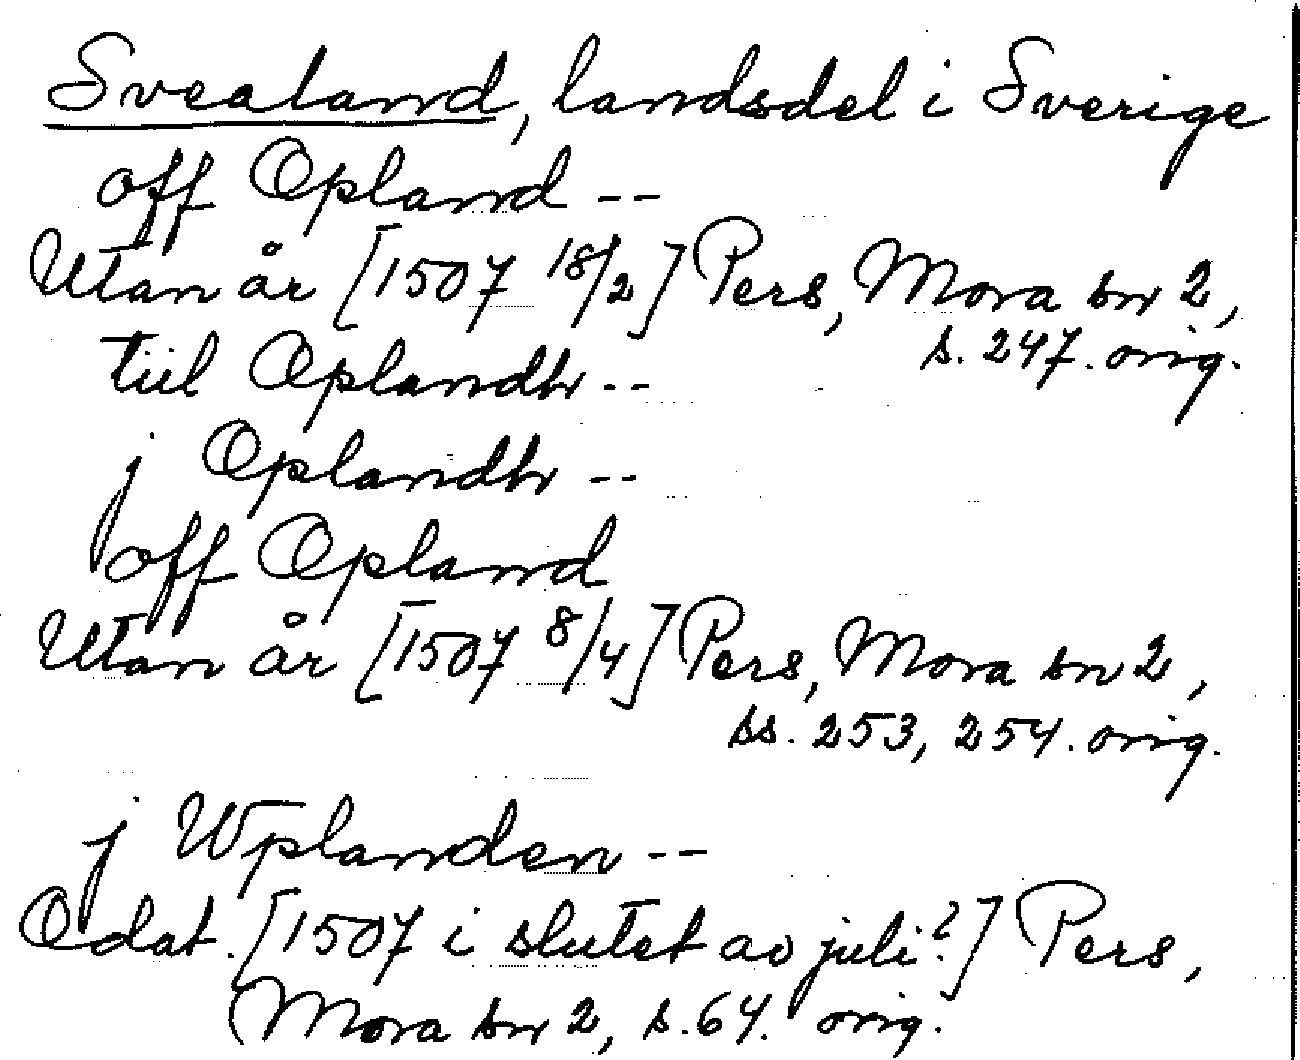 Svealand, landsdel i Sverige
off Opland --
Utan år [1507 18/2] Pers, Mora sn 2,
s. 247. orig.
tiil Oplandh --
j Oplandh --
off Opland
Utan år [1507 8/4] Pers, Mora sn 2,
ss. 253, 254. orig.
j Wplanden --
Odat. [1507 i slutet av juli?] Pers,
Mora sn 2, s. 64. orig.